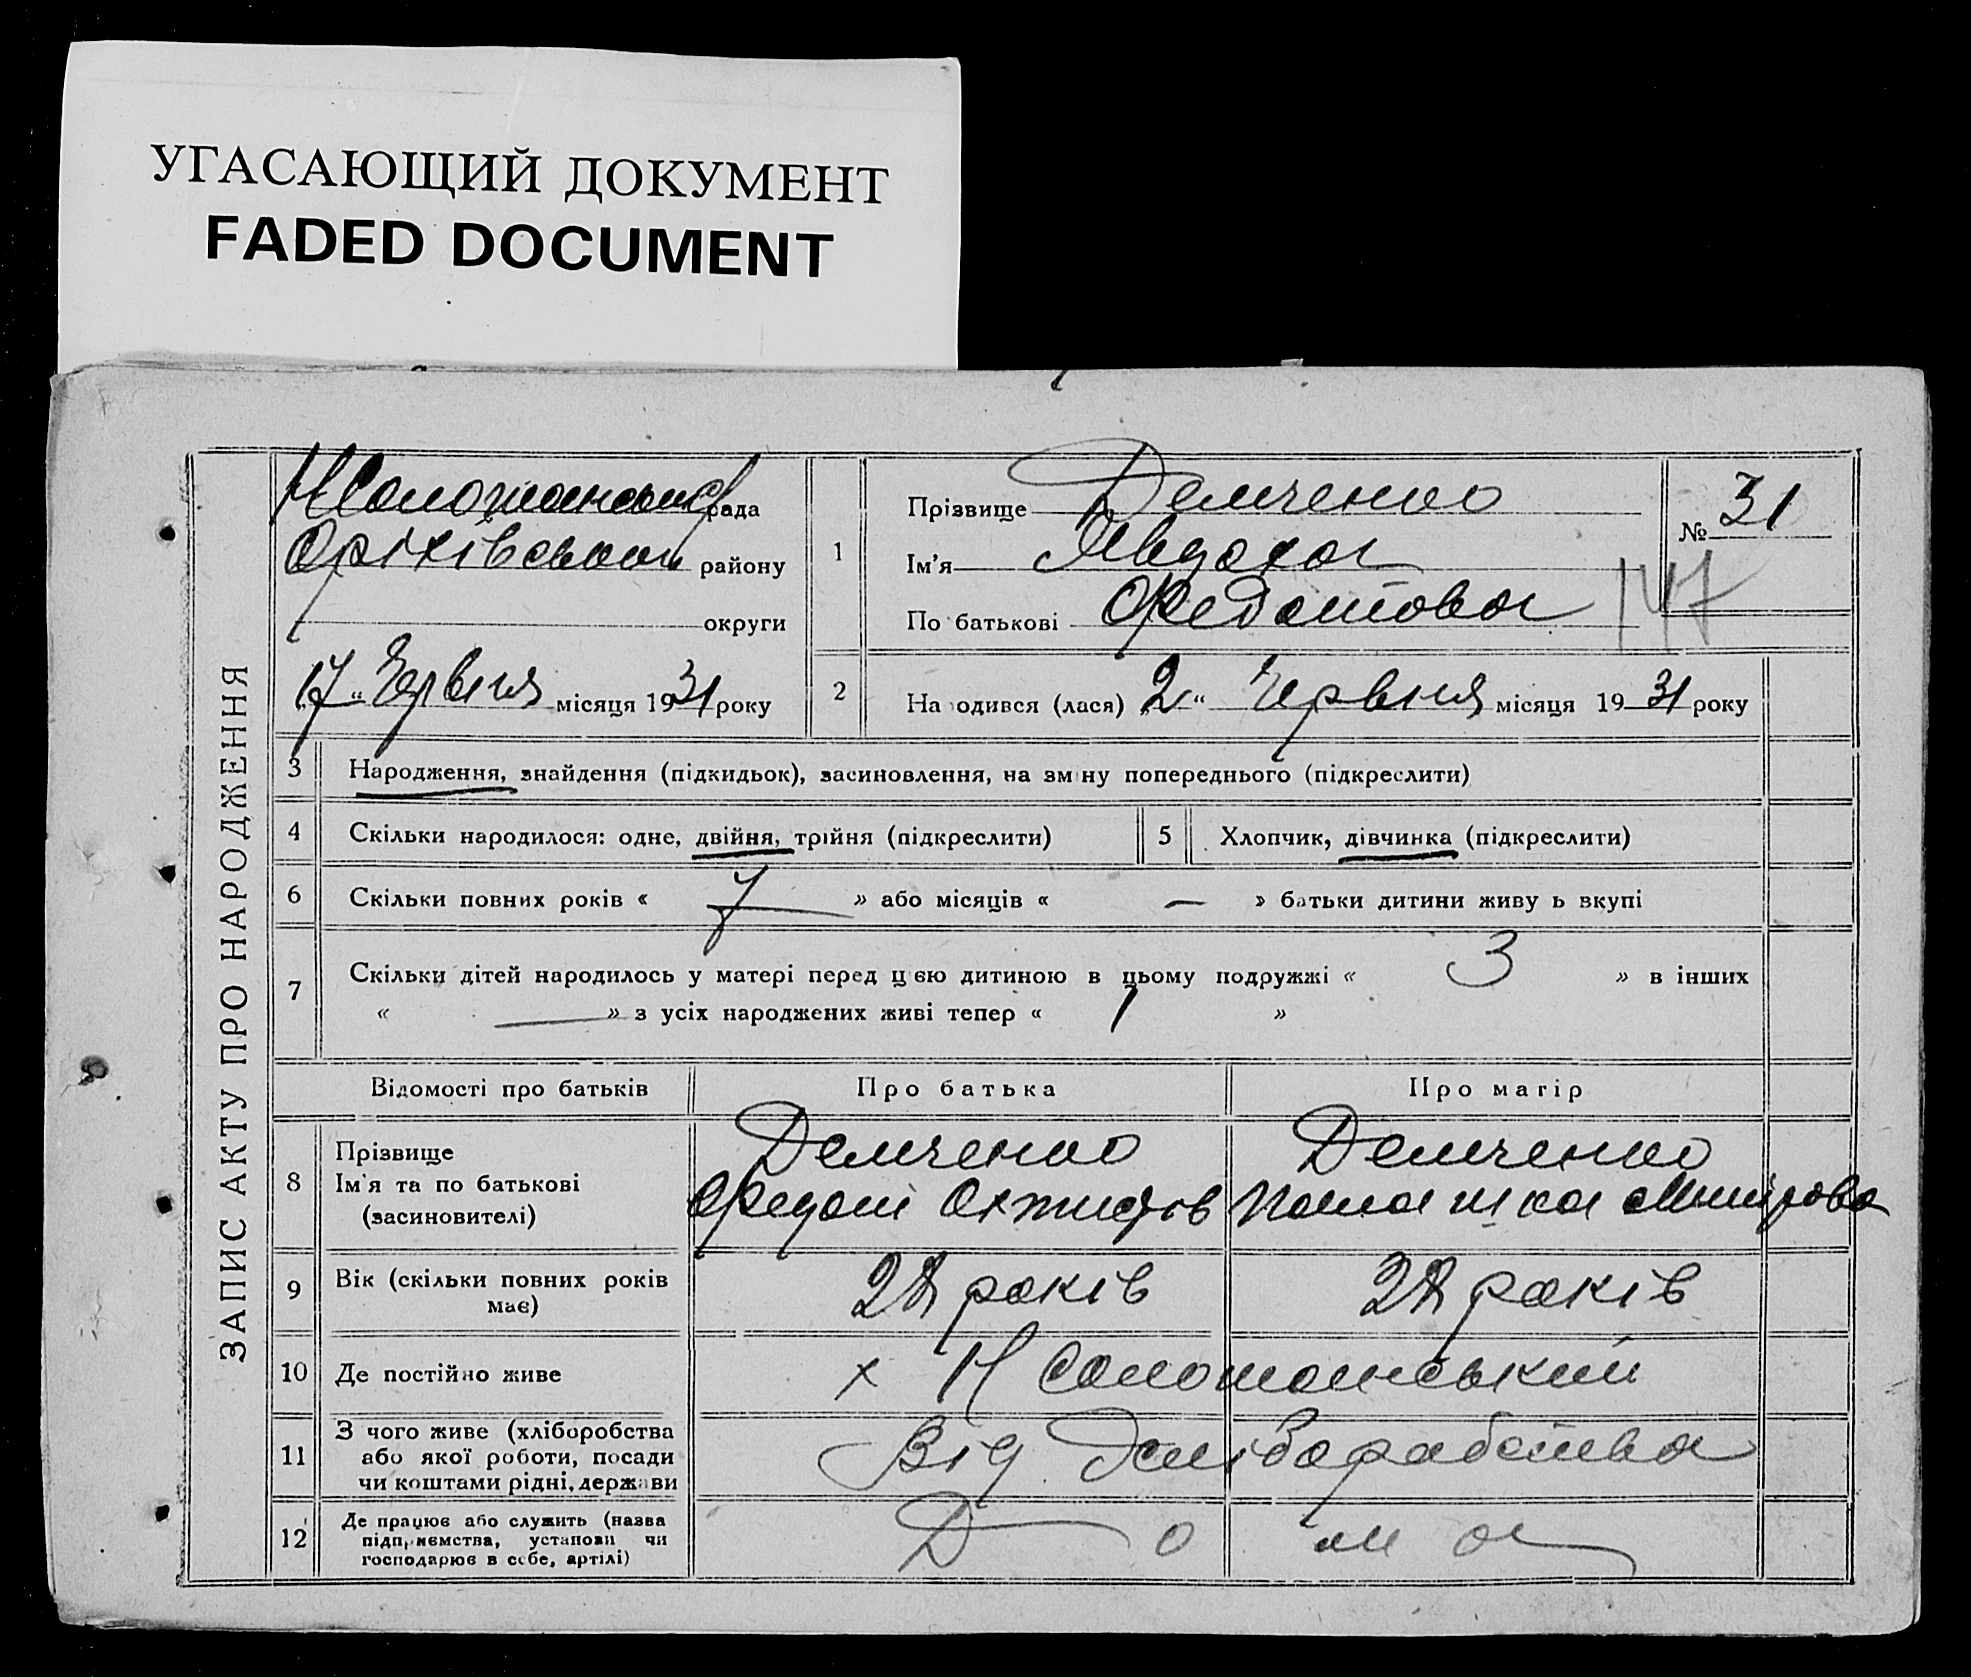 УГАСАЮЩИЙ ДОКУМЕНТ
FADED DOCUMENT
ЗАПИС АКТУ ПРО НАРОДЖЕННЯ
рада
Оріхівського району
округи
17 " Червня місяця 1931 року
1
Прізвище Демченко
Ім'я Явдоха
По батькові Федотова
№ 31
147
2
Народився (лася) "2" Червня місяця 1931 року
3 Народження, знайдення (підкидьок), засиновлення, на зміну попереднього (підкреслити)
4 Скільки народилося: одне, двійня, трійня (підкреслити)
5 Хлопчик, дівчинка (підкреслити)
6 Скільки повних років « 7 » або місяців « — » батьки дитини живуть вкупі
7 Скільки дітей народилось у матері перед цією дитиною в цьому подружжі « 3 » в інших
« — » з усіх народжених живі тепер « 1 »
Відомості про батьків Про батька Про матір
8 Прізвище
Ім'я та по батькові
(засиновителі)
Демченко
Федот
Демченко
Палашка
9 Вік (скільки повних років
має)
років
років
10 Де постійно живе
х Н
11 З чого живе (хліборобства
або якої роботи, посади
чи коштами рідні, держави
Від
12 Де працює або служить (назва
підприємства, установи чи
господарює в себе, артілі)
Дома